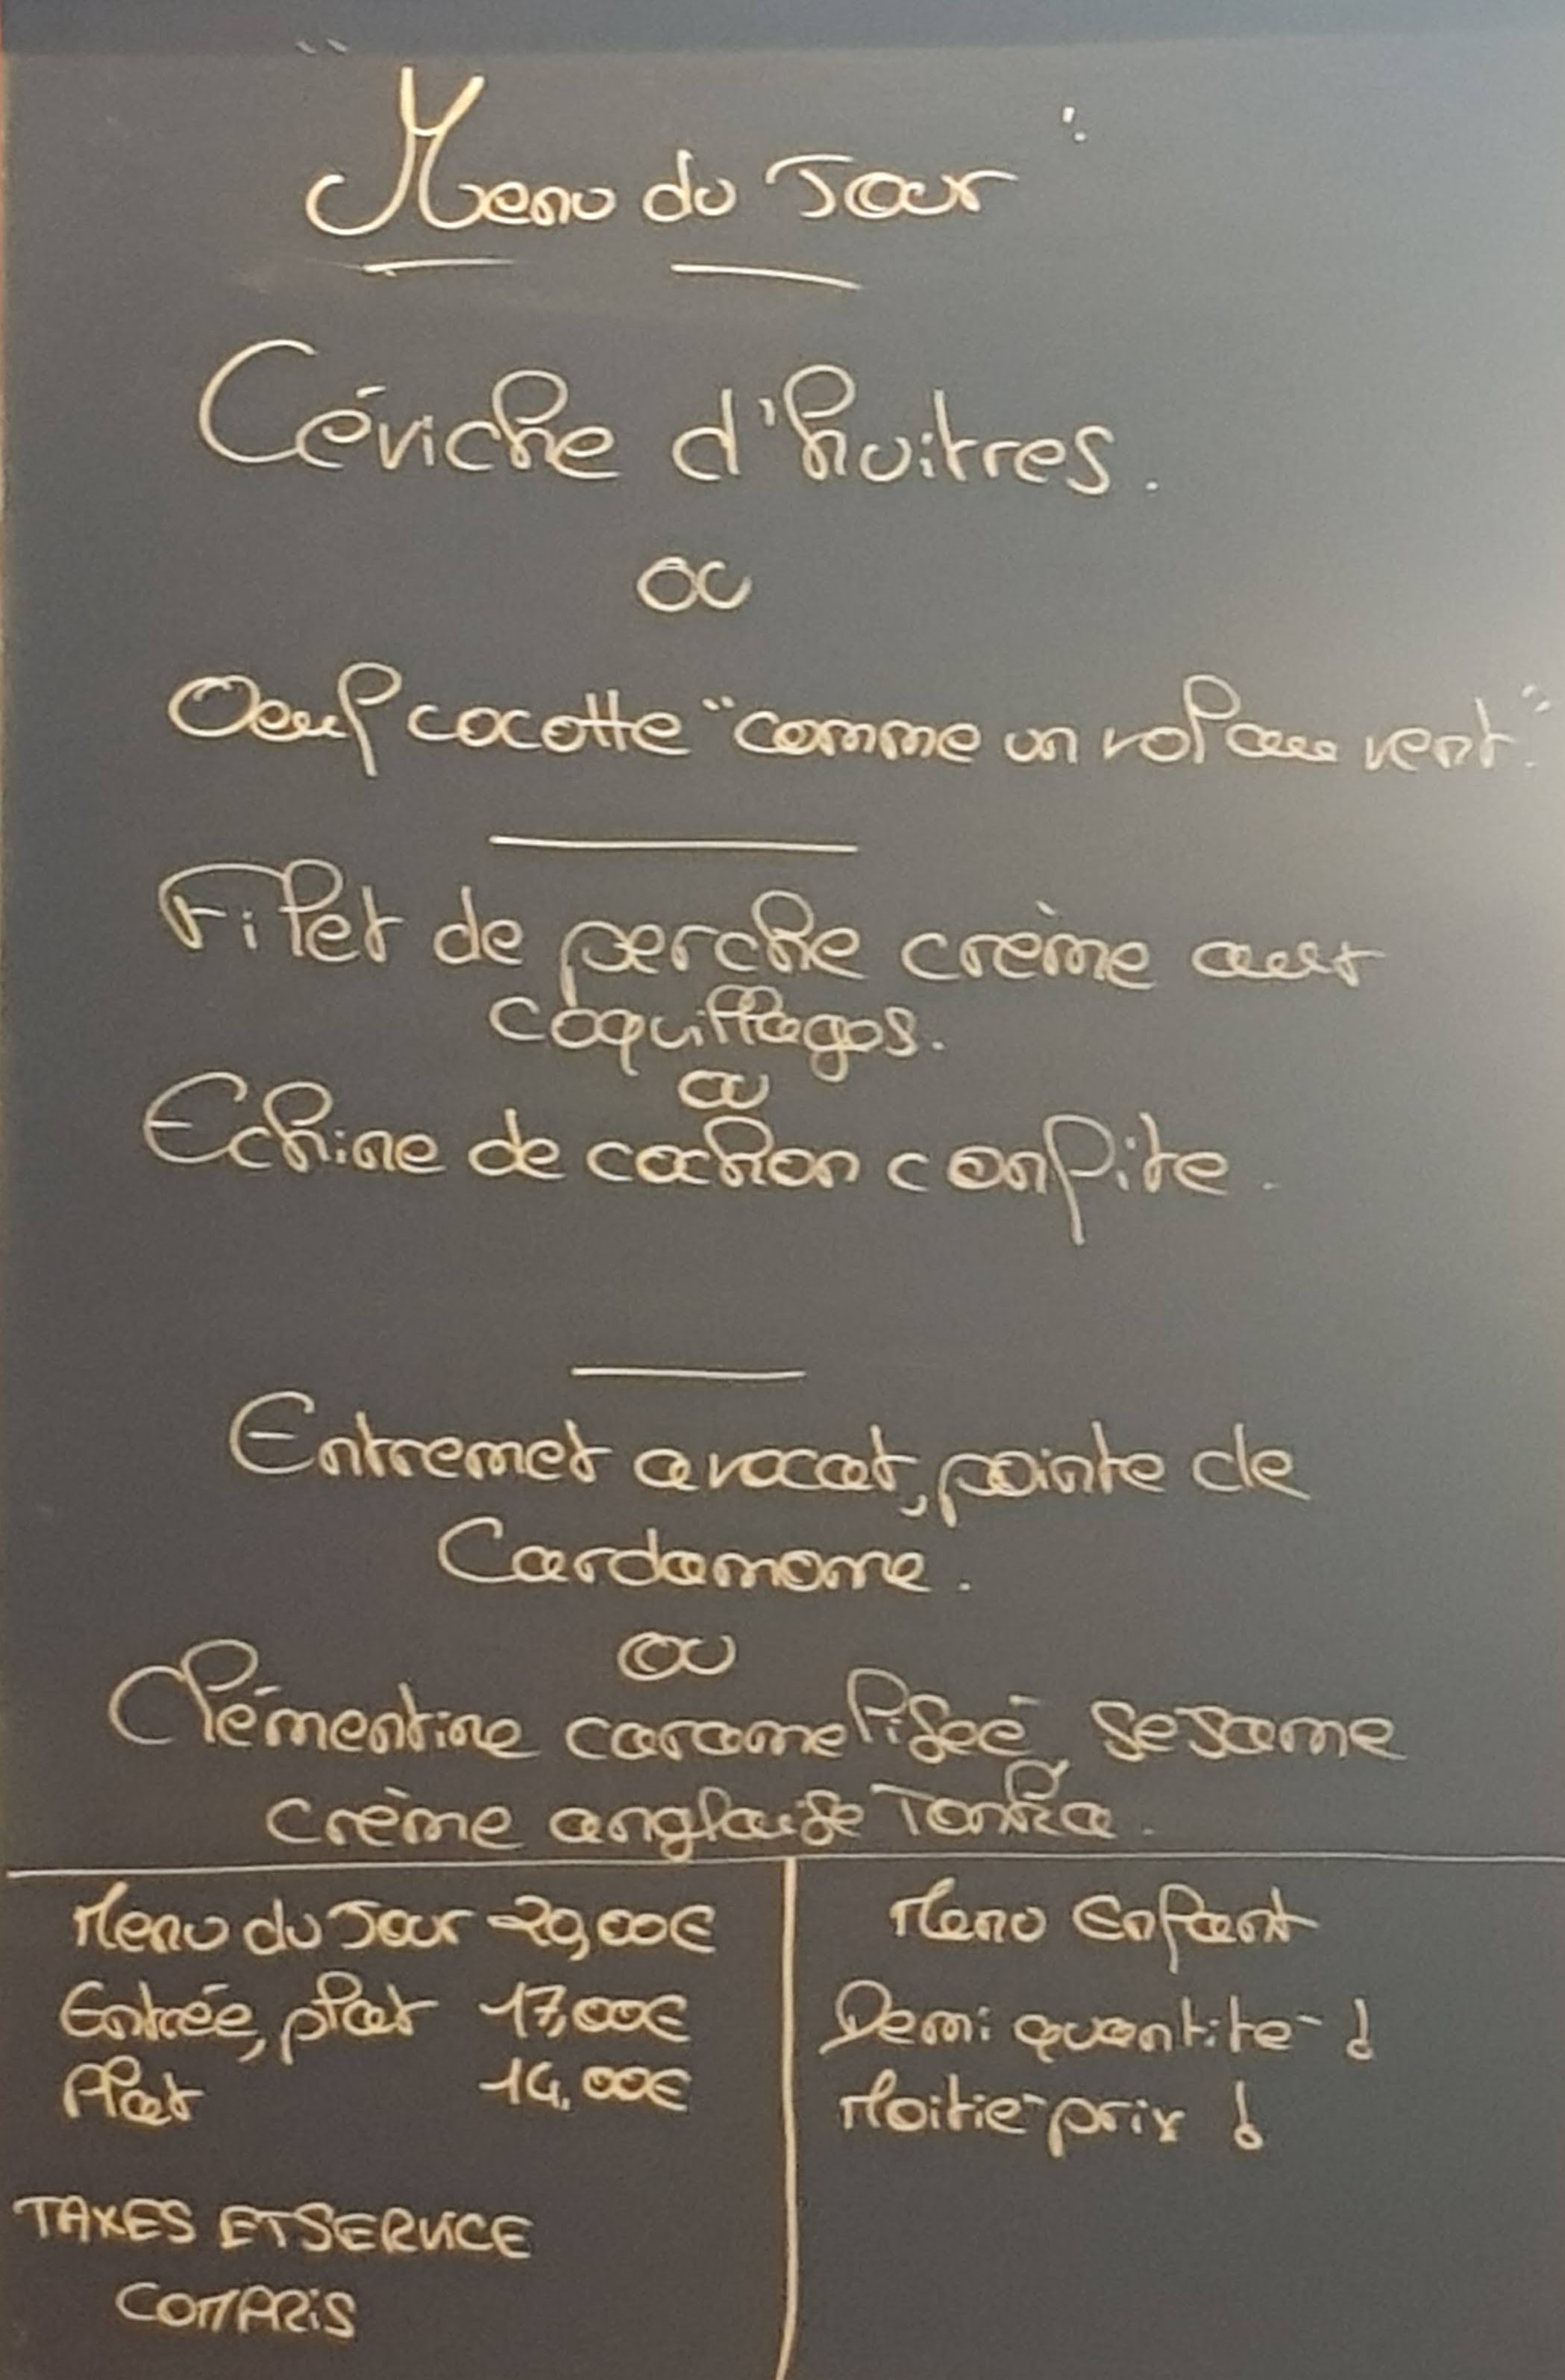 "Menu du Jour"
Céviche d'huitres.
ou
Oeuf cocotte "comme un vol au vent".
Filet de perche crème aux
coquillages.
ou
Echine de cochon confite.
Entremet avocat, pointe de
Cardamome.
ou
Clémentine caramelisée, sesame
crème anglaise Tonka.
Menu du Jour 20,00€
Entrée, plat 17,00€
Plat 14,00€
TAXES ET SERVICE
COMPRIS
Menu Enfant
Demi quantité !
Moitié prix !